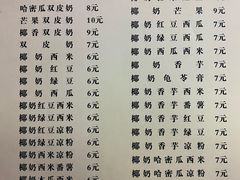 哈密瓜双皮奶 8元
芒果双皮奶 10元
椰香双皮奶 9元
双皮奶 7元
椰奶西米 6元
椰奶红豆 6元
椰奶绿豆 6元
椰奶西瓜 6元
椰奶红豆西米 6元
椰奶绿豆西米 6元
椰奶红豆凉粉 6元
椰奶绿豆凉粉 6元
椰奶西米凉粉 6元
椰奶西米番薯 6元
椰奶木瓜西米 7元
椰奶芒果 9元
椰奶红豆西瓜 7元
椰奶绿豆西瓜 7元
椰奶西瓜西米 7元
椰奶香芋 7元
椰奶龟苓膏 7元
椰奶香芋西米 7元
椰奶香芋番薯 7元
椰奶香芋红豆 7元
椰奶香芋绿豆 7元
椰奶香芋凉粉 7元
椰奶哈密瓜西米 7元
椰奶哈密瓜凉粉 7元